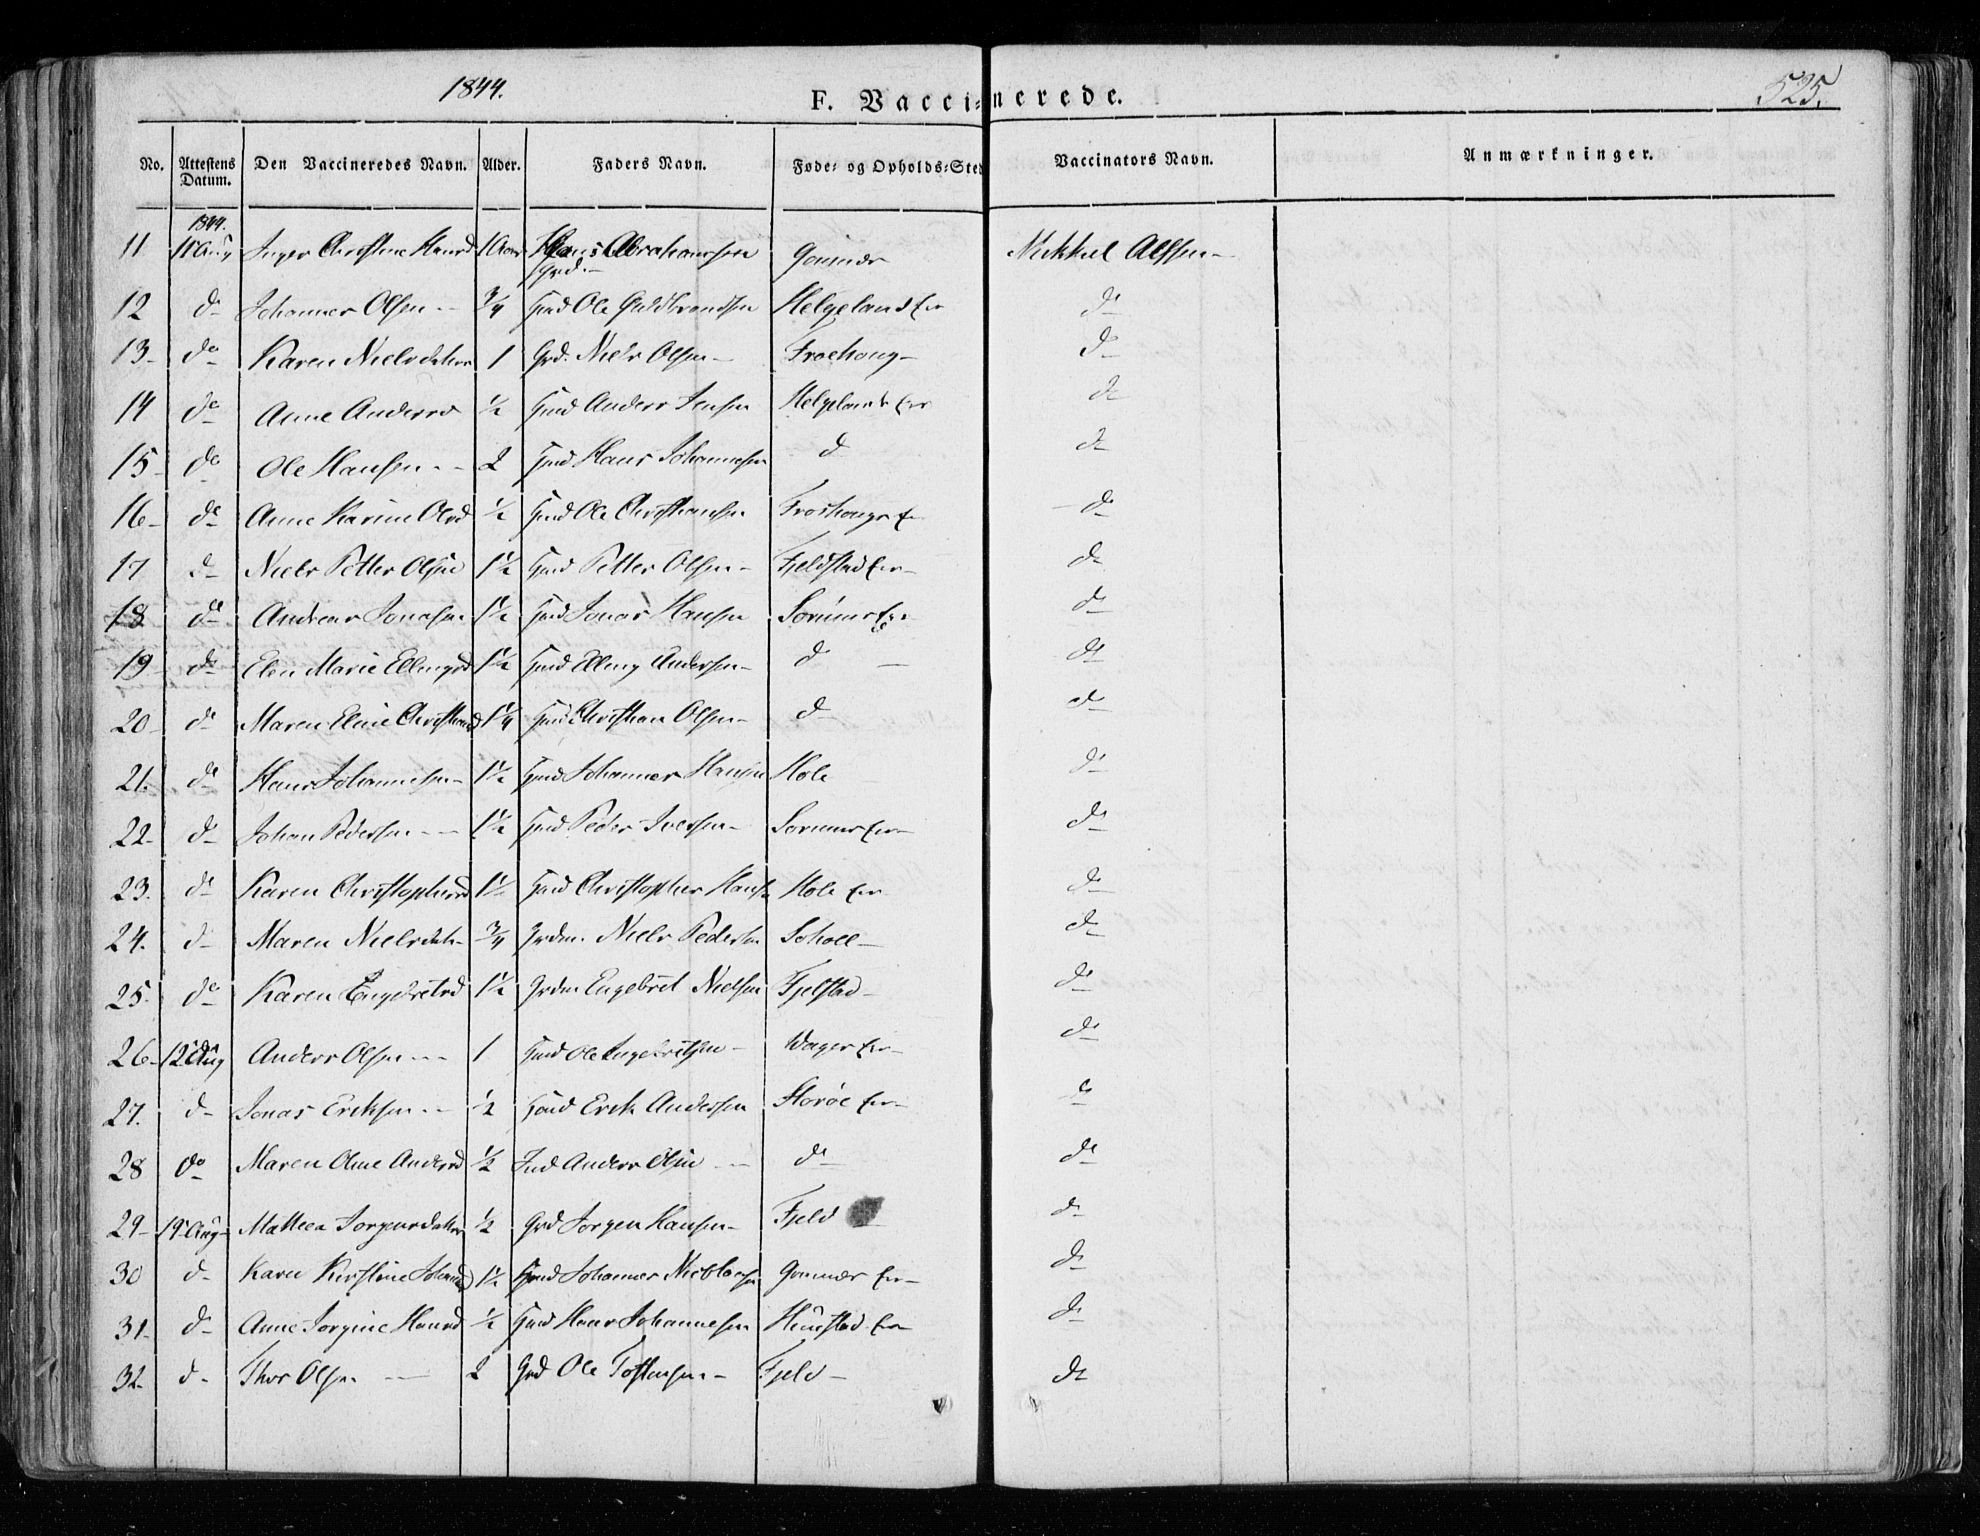 1844.
F. Vaccinerede.
525.
No. Attestens Datum. Den Vaccineredes Navn. Alder. Faders Navn. Føde- og Opholds-Sted Vaccinators Navn. Anmærkninger.
1844.
11 11 Aug Inger Christine Hansd 1 Aar Hans Abrahamsen Gomnæs Mikkel Alfsen
Grd.
12 do Johannes Olsen 3/4 Hmd Ole Guldbrandsen Helgeland Eie do
13 do Karen Nielsdatter 1 Grd. Niels Olsen Froehoug do
14 do Anne Andersd 1/2 Hmd Anders Jensen Helgelands Eie do
15 do Ole Hansen 2 Hmd Hans Johannesen do do
16 do Anne Karine Olsd 1/2 Hmd Ole Christiansen Froshougs E do
17 do Niels Petter Olsen 1 1/2 Hmd Petter Olsen Fjeldstad Eie do
18 do Andreas Jonasen 1 1/2 Hmd Jonas Hansen Sørums Eie do
19 do Elen Marie Ellingsd 1 1/2 Hmd Elling Andersen do do
20 do Maren Eline Christiansd 1 1/4 Hmd Christian Olsen do do
21. do Hans Johannesen 1 1/2 Hmd Johannes Hansen Hole do
22 do Johan Pedersen 1 1/2 Hmd Peder Iversen Sørums Eie do
23. do Karen Christophersd 1 1/2 Hmd Christopher Hansen Hole Eie do
24. do Maren Nielsdatr 3/4 Grdm. Niels Pedersen do
25. do Karen Engebretsd 1 1/2 Grdm Engebret Nielsen Fjelstad do
26 12 Aug Anders Olsen 1 Hmd Ole Ingebretsen Wager Eie do
27. do Jonas Eriksen 1/2 Hmd Erik Andersen Storøe Eie do
28 do Maren Oline Andersd 1/2 Ind Anders Olsen do do
29 19 Aug Mathea Jørgensdatter 1/2 Grd Jørgen Hansen Fjeld do
30 do Karen Kirstine Johannesd 1 1/2 Hmd Johannes Gomnæs Eie do
31. do Anne Jørgine Hansd 1/2 Hmd Hans Johannesen Hunstad Eie do
32. do Thor Olsen 2 Grd Ole Tostensen Fjeld do